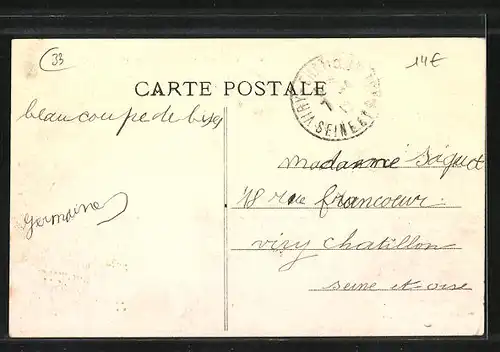 33
14€
CARTE POSTALE
beaucoupe de bises
Germaine
Madame
18 rue francoeur
viry chatillon
seine et oise
VIRY-CHATILLON
SEINE ET